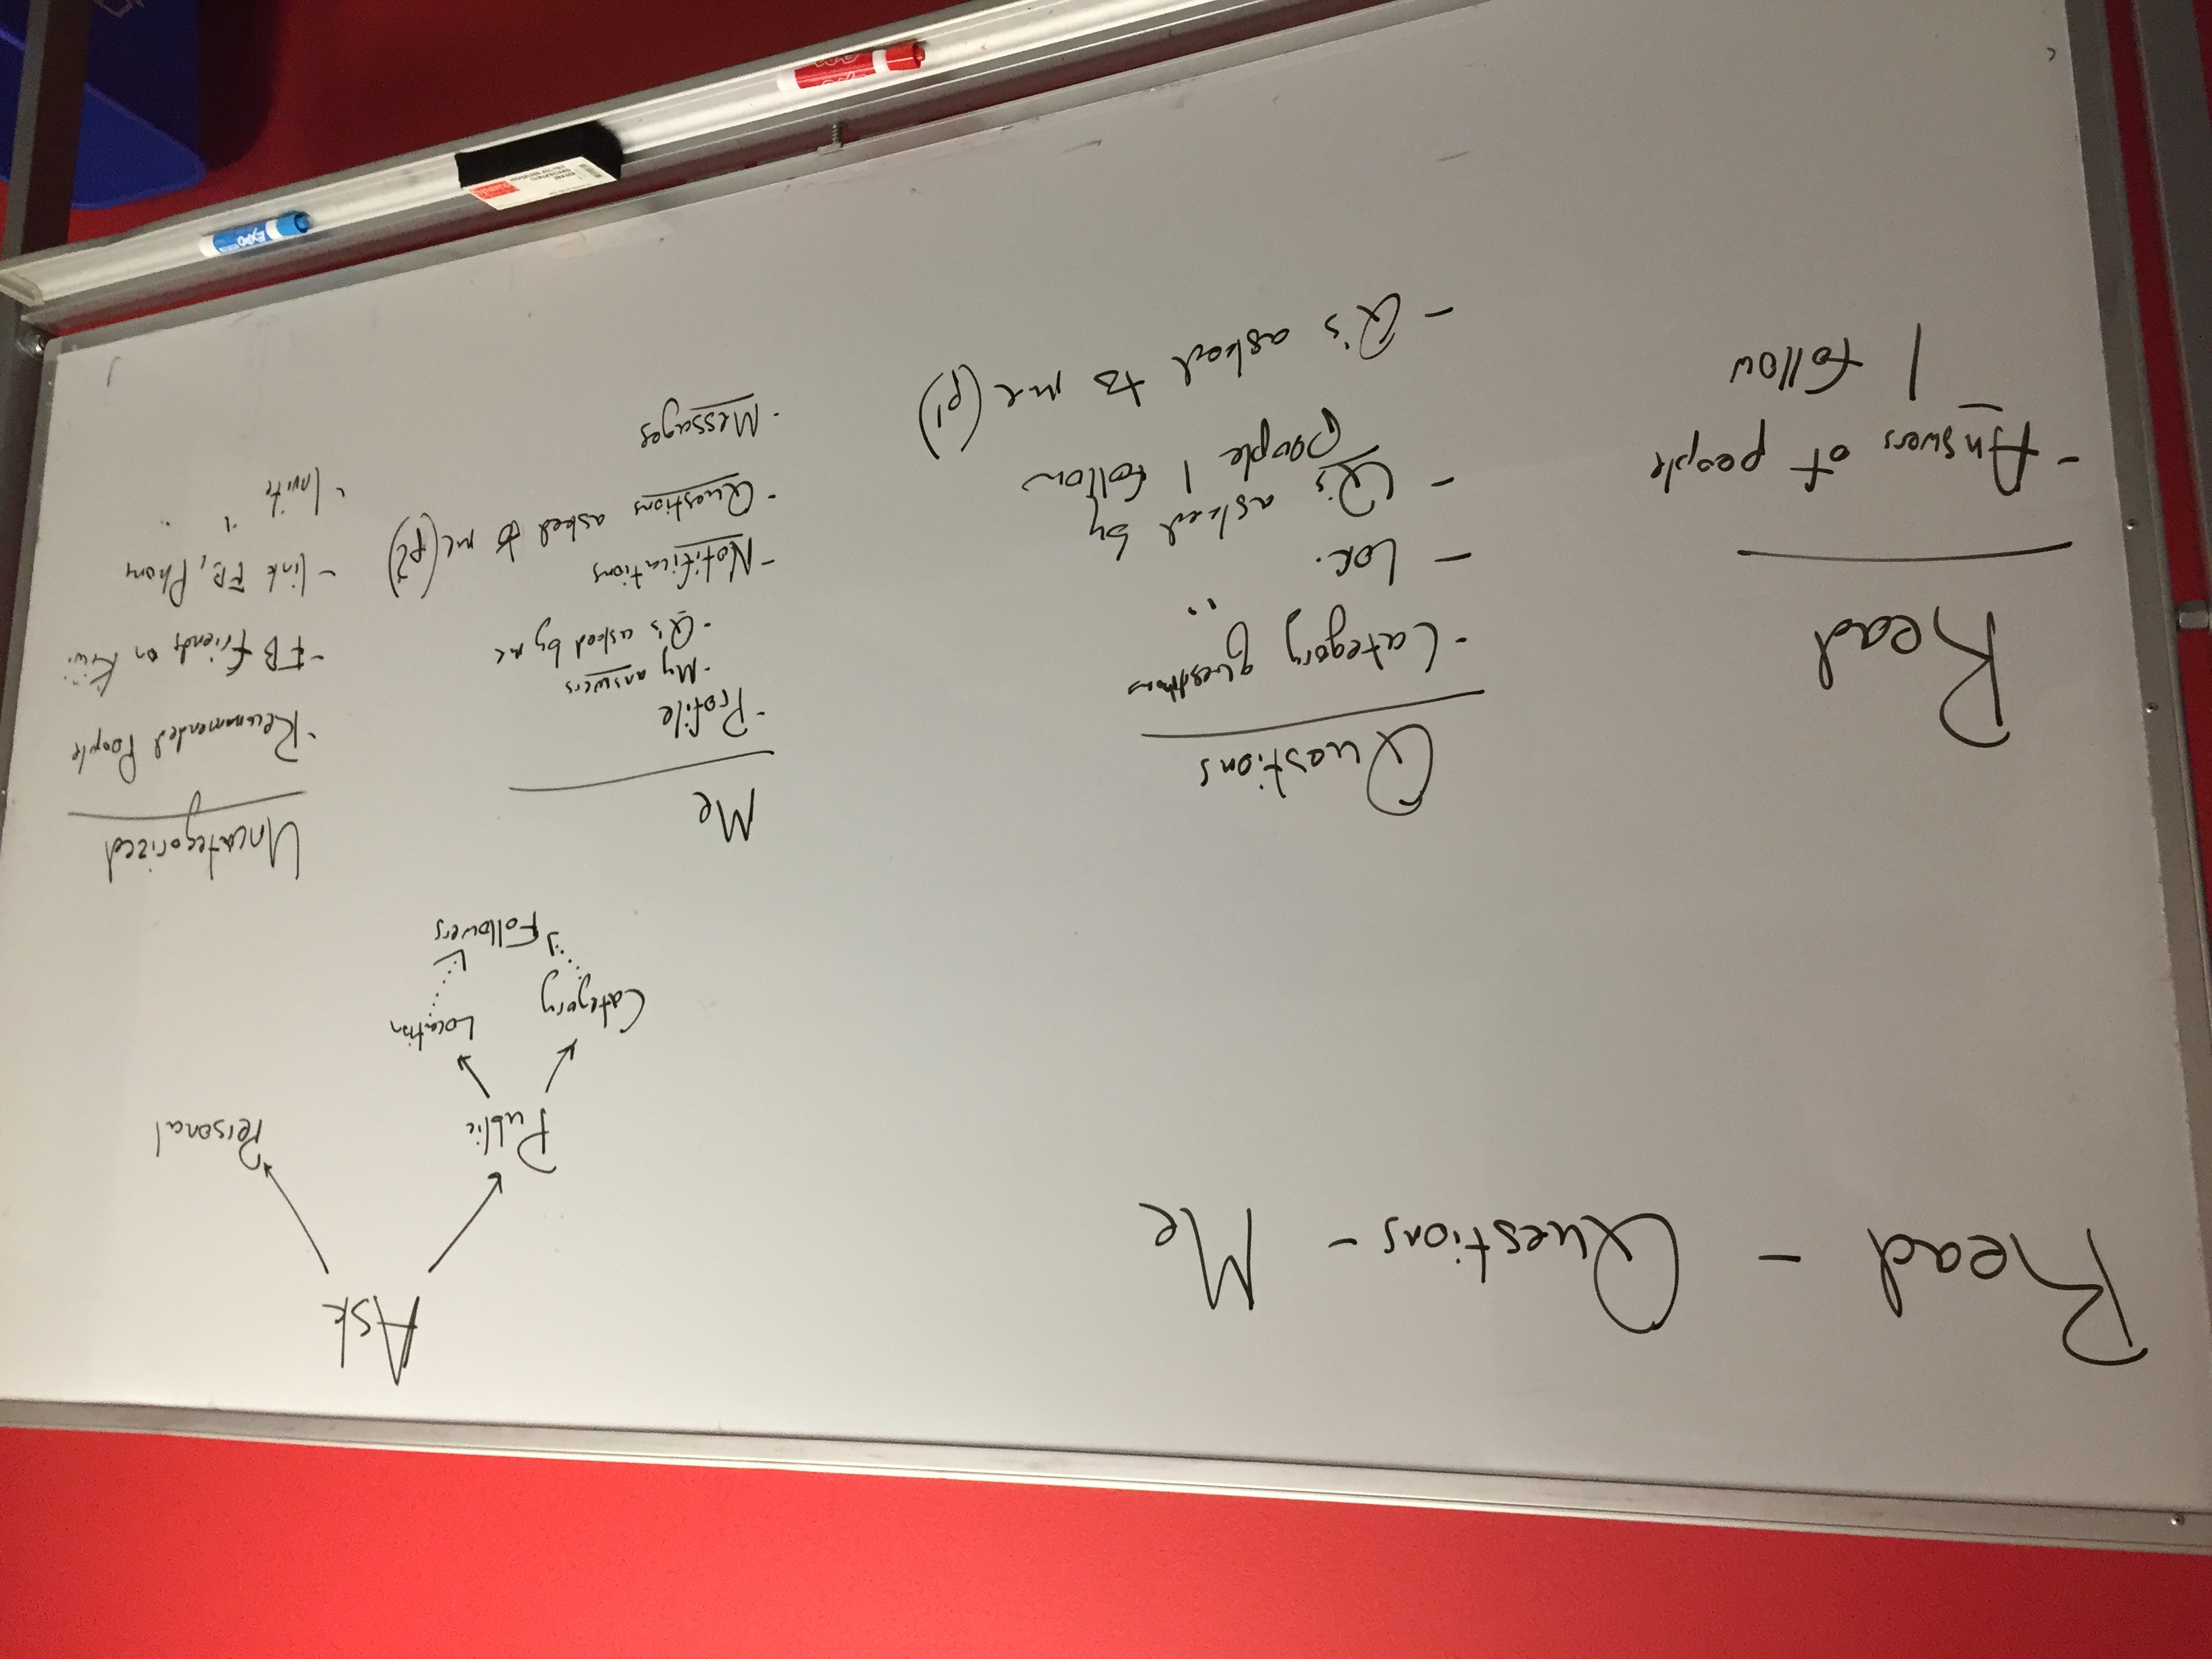 Read - Questions - Me
Ask
Public
Personal
Category
Location
Followers
Read
- Answers of people
I follow
Questions
- Category questions
- Loc. "
- Q's asked by
people I follow
- Q's asked to me (p1)
Me
- Profile
- My answers
- Q's asked by me
- Notifications
- Questions asked to me (p2)
- Messages
Uncategorized
- Recommended People
- FB friends on Kiwi
- link FB, Phone
- Invite " "
EXPO